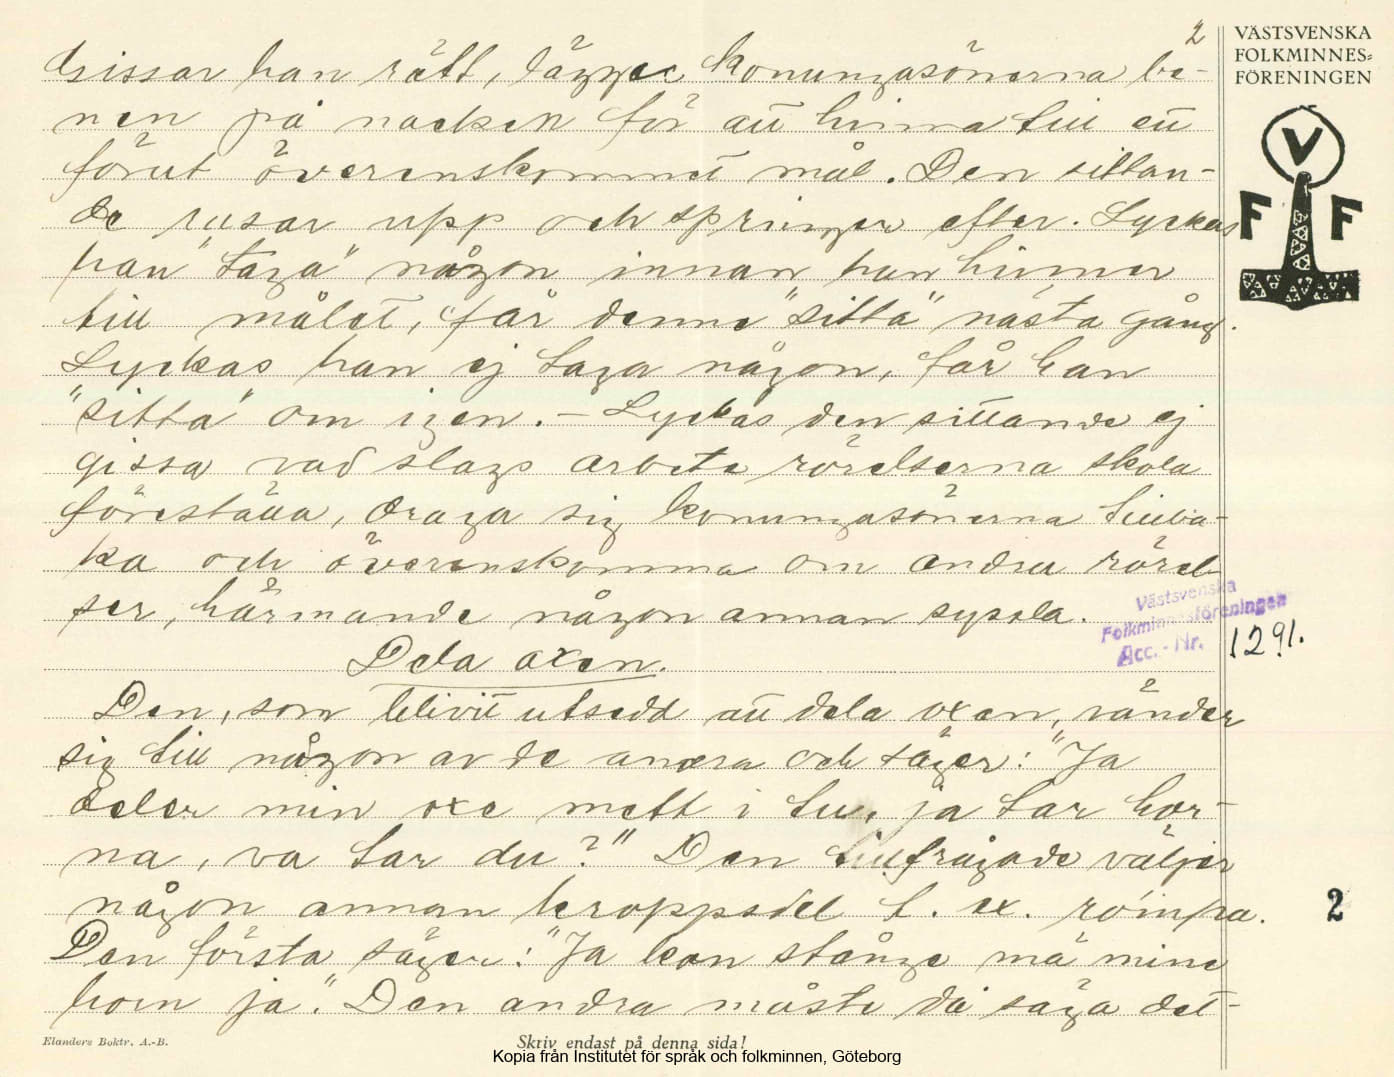 2
VÄSTSVENSKA
FOLKMINNES=
FÖRENINGEN
V
F F
Gissar han rätt, lägger konungasönerna be-
nen på nacken för att hinna till ett
förut överenskommet mål. Den sittan-
de rusar upp och springer efter. Lyckas
han "taga" någon innan han hinner
till målet, får denne "sitta" nästa gång.
Lyckas han ej taga någon, får han
"sitta" om igen. – Lyckas den sittande ej
gissa vad slags arbete rörelserna skola
föreställa, draga sig konungasönerna tillba-
ka och överenskomma om andra rörel-
ser, härmande någon annan syssla.
Västsvenska
Folkminnesföreningen
Acc. - Nr. 1291.
Dela oxen.
Den, som blivit utsedd att dela oxen, vänder
sig till någon av de andra och säger: "Ja
deler min oxe mett i tu, ja tar hor-
na, va tar du?" Den tillfrågade väljer
någon annan kroppsdel t. ex. rompa.
Den första säger: "Ja kan stånge mä mine
horn ja". Den andra måste då säga det-
2
Elanders Boktr. A.-B.
Skriv endast på denna sida!
Kopia från Institutet för språk och folkminnen, Göteborg